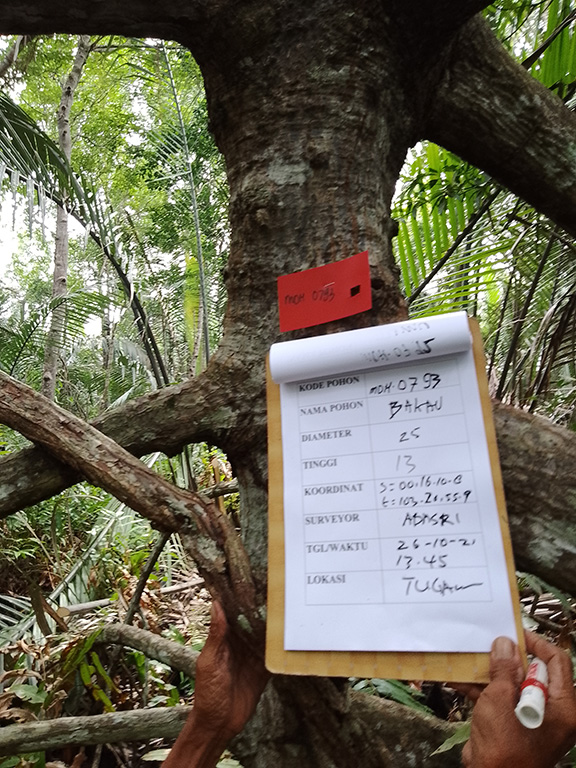 MDH 0793
KODE POHON MDH-0793
NAMA POHON BAKAU
DIAMETER 25
TINGGI 13
KOORDINAT S=00.16.10.8
E=103.26.55.9
SURVEYOR ADASRI
TGL/WAKTU 26-10-21
13.45
LOKASI